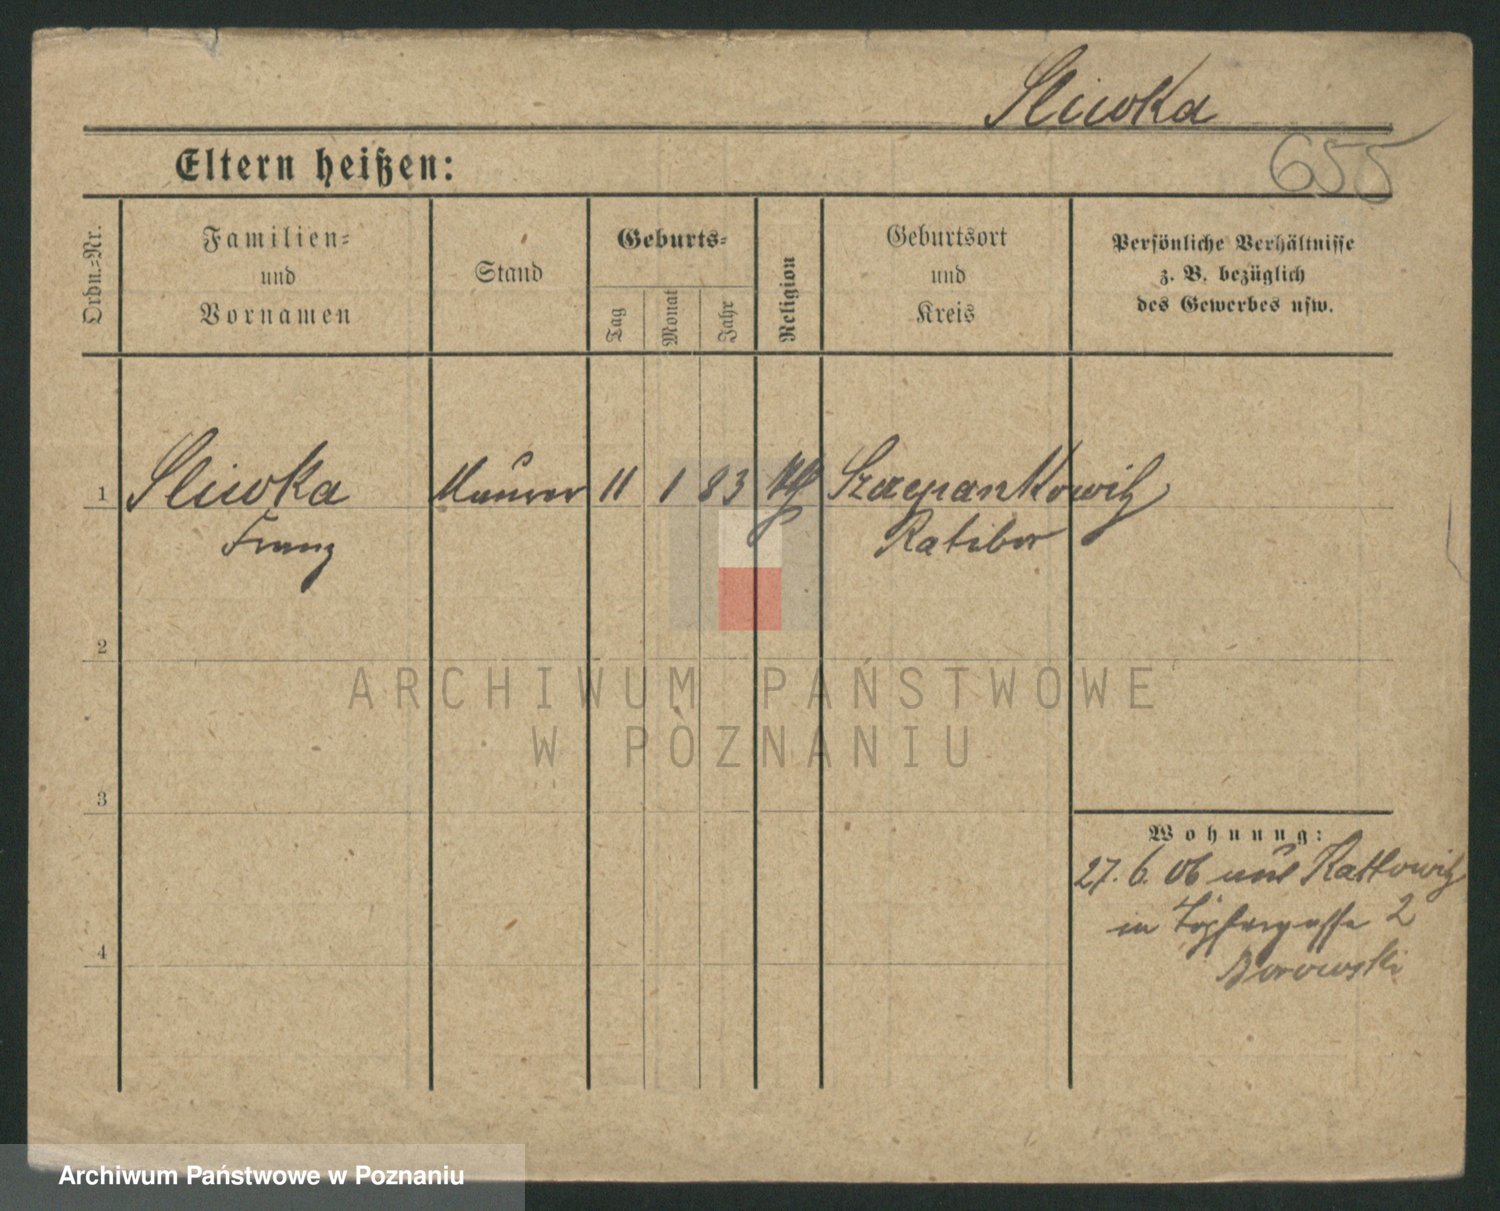 Sliwka
655
Eltern heißen:
Ordn.-Nr.
Familien-
und
Vornamen
Stand
Geburts-
Tag
Monat
Jahr
Religion
Geburtsort
und
Kreis
Persönliche Verhältnisse
z. B. bezüglich
des Gewerbes usw.
1 Sliwka Maurer 11 1 83 kth Szczepankowitz
Franz Ratibor
2
ARCHIWUM PAŃSTWOWE
W POZNANIU
3
Wohnung:
27. 6. 06 aus Kattowitz
in Töpfergasse 2
Borowski
4
Archiwum Państwowe w Poznaniu